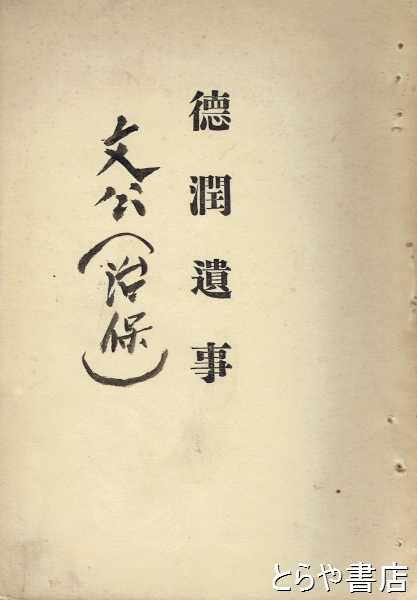 德潤遺事
文公(治保)
とらや書店